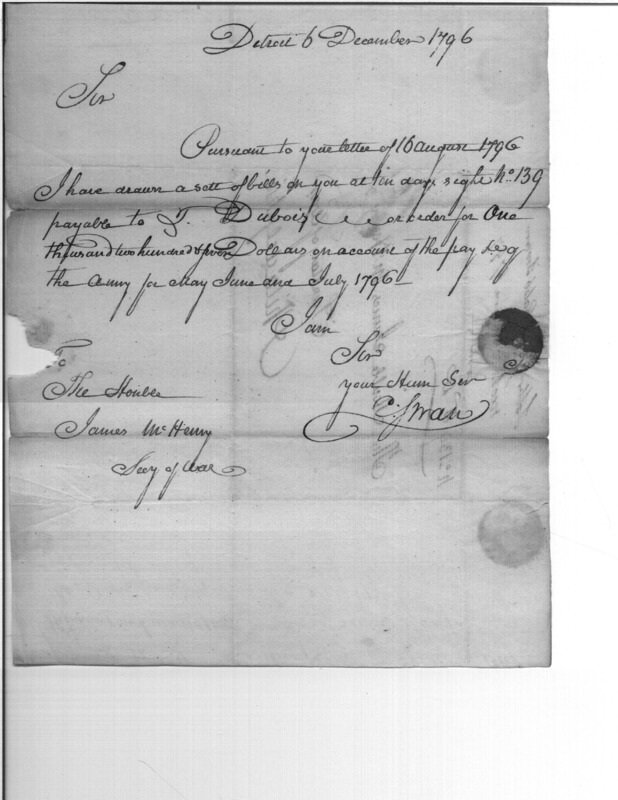 Detroit 6 December 1796
Sir
Pursuant to your letter of 16 August 1796
I have drawn a sett of bills on you at ten days sight No. 139
payable to T. Dubois or order for One
thousand two hundred & seven Dollars on account of the pay &c of
the Army for May June and July 1796
I am
Sir
your Hum Ser
C. Swan
To
The Honble
James McHenry
Secy of War